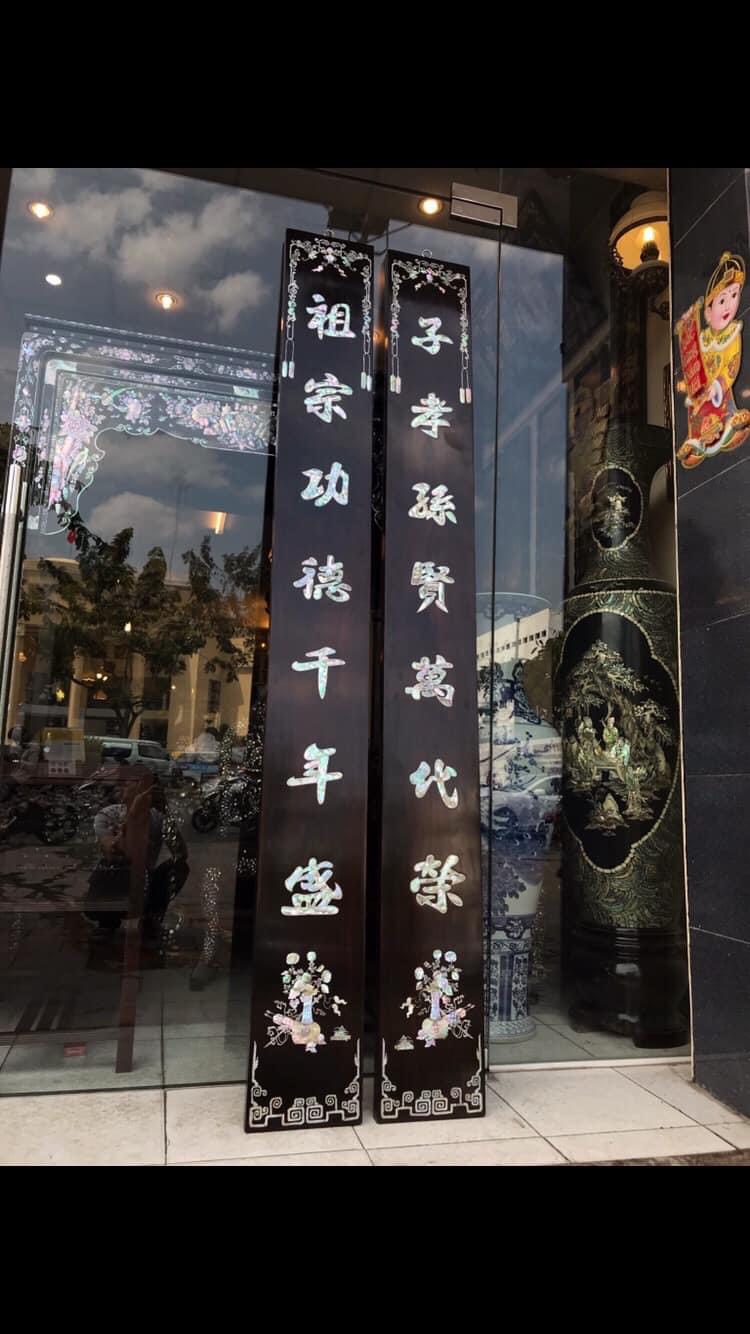 祖宗功德千年盛
子孝孫賢萬代榮